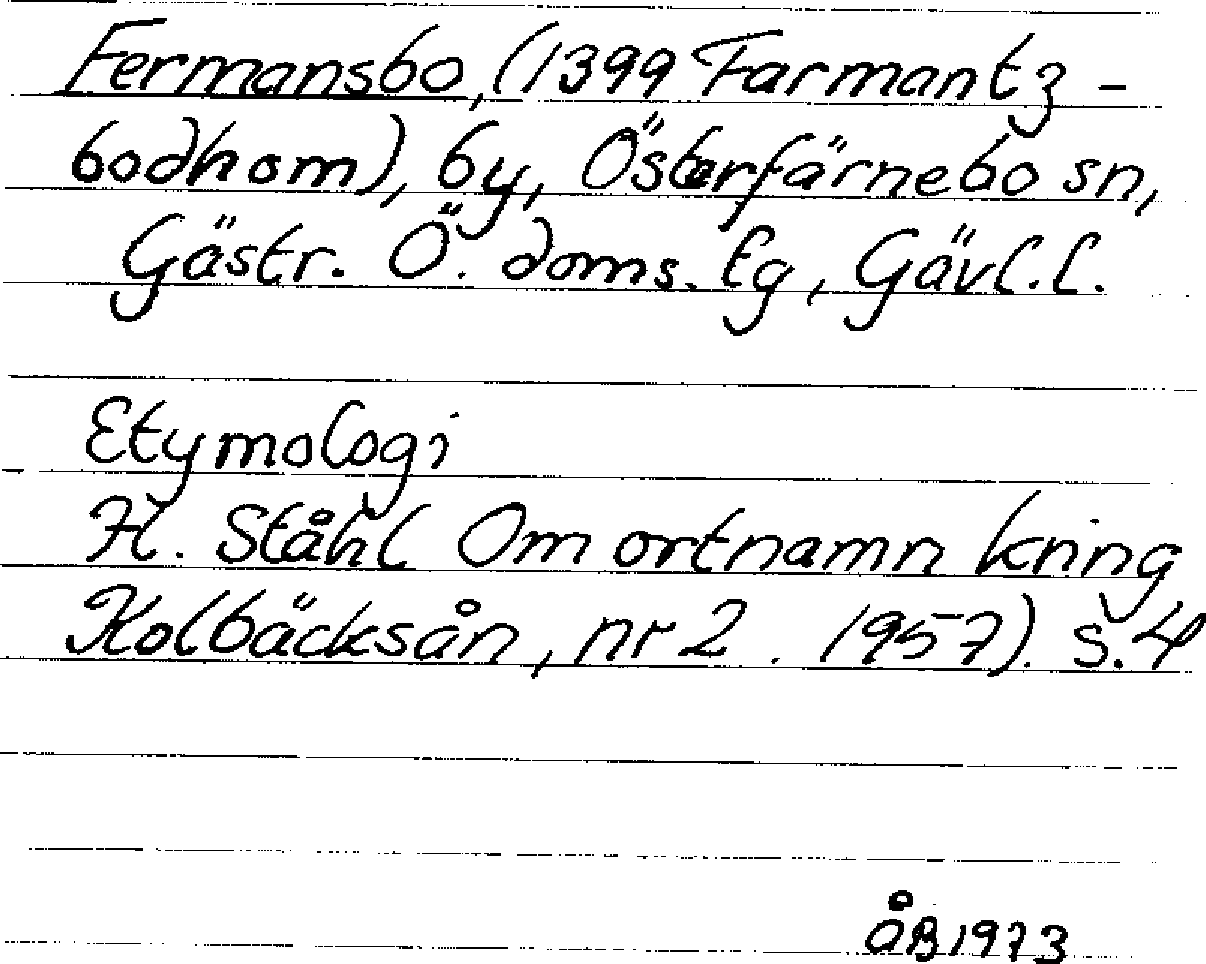 Fermansbo, (1399 Farmantz-
bodhom), by, Österfärnebo sn,
Gästr. Ö. doms. tg, Gävl. l.
Etymologi
H. Ståhl Om ortnamn kring
Kolbäcksån, nr 2. 1957). s. 4
ÅB 1973